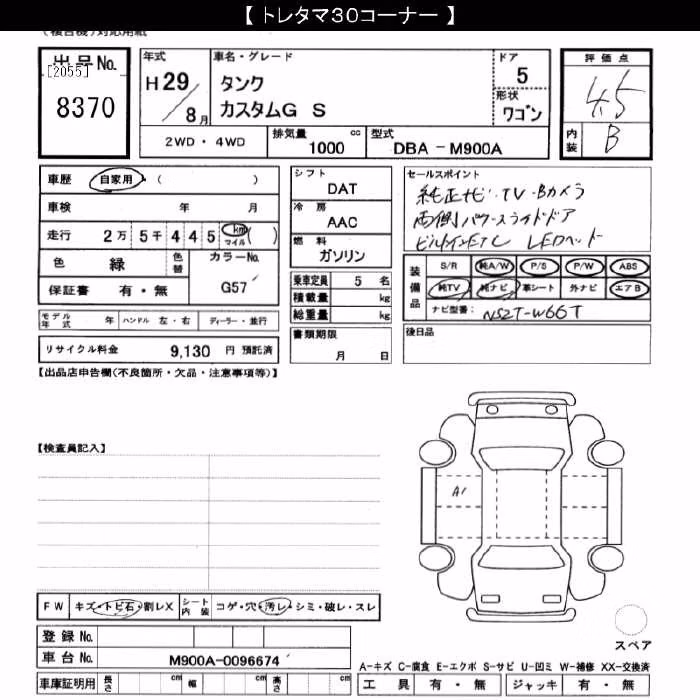 【 トレタマ30コーナー 】
(複合機)対応用紙
出品No.
[2055]
8370
年式
H29/8月
車名・グレード
タンク
カスタムG S
ドア
5
形状
ワゴン
評価点
4.5
内装
B
2WD・4WD
排気量 1000 cc
型式 DBA－M900A
車歴 自家用・( )
車検 年 月
走行 2万 5千 4 4 5 km マイル ( )
色 緑 色替 カラーNo.
G57
保証書 有・無
モデル年式 年 ハンドル 左・右 ディーラー・並行
リサイクル料金 9,130 円 預託済
シフト
DAT
冷房
AAC
燃料
ガソリン
乗車定員 5 名
積載量 kg
総重量 kg
書類期限
月 日
セールスポイント
純正ナビ・TV・Bカメラ
両側パワースライドドア
ビルトインETC LEDヘッド
装備品
S/R 純A/W P/S P/W ABS
純TV 純ナビ 革シート 外ナビ エアB
ナビ型番: NSZT-W66T
後日品
【出品店申告欄(不良箇所・欠品・注意事項等)】
【検査員記入】
A1
FW キズ・トビ石・割レX シート内装 コゲ・穴・汚レ・シミ・破レ・スレ
登録No.
車台No. M900A-0096674
車庫証明用 長さ cm 幅 cm 高さ cm
スペア
A-キズ C-腐食 E-エクボ S-サビ U-凹ミ W-補修 XX-交換済
工具 有・無 ジャッキ 有・無